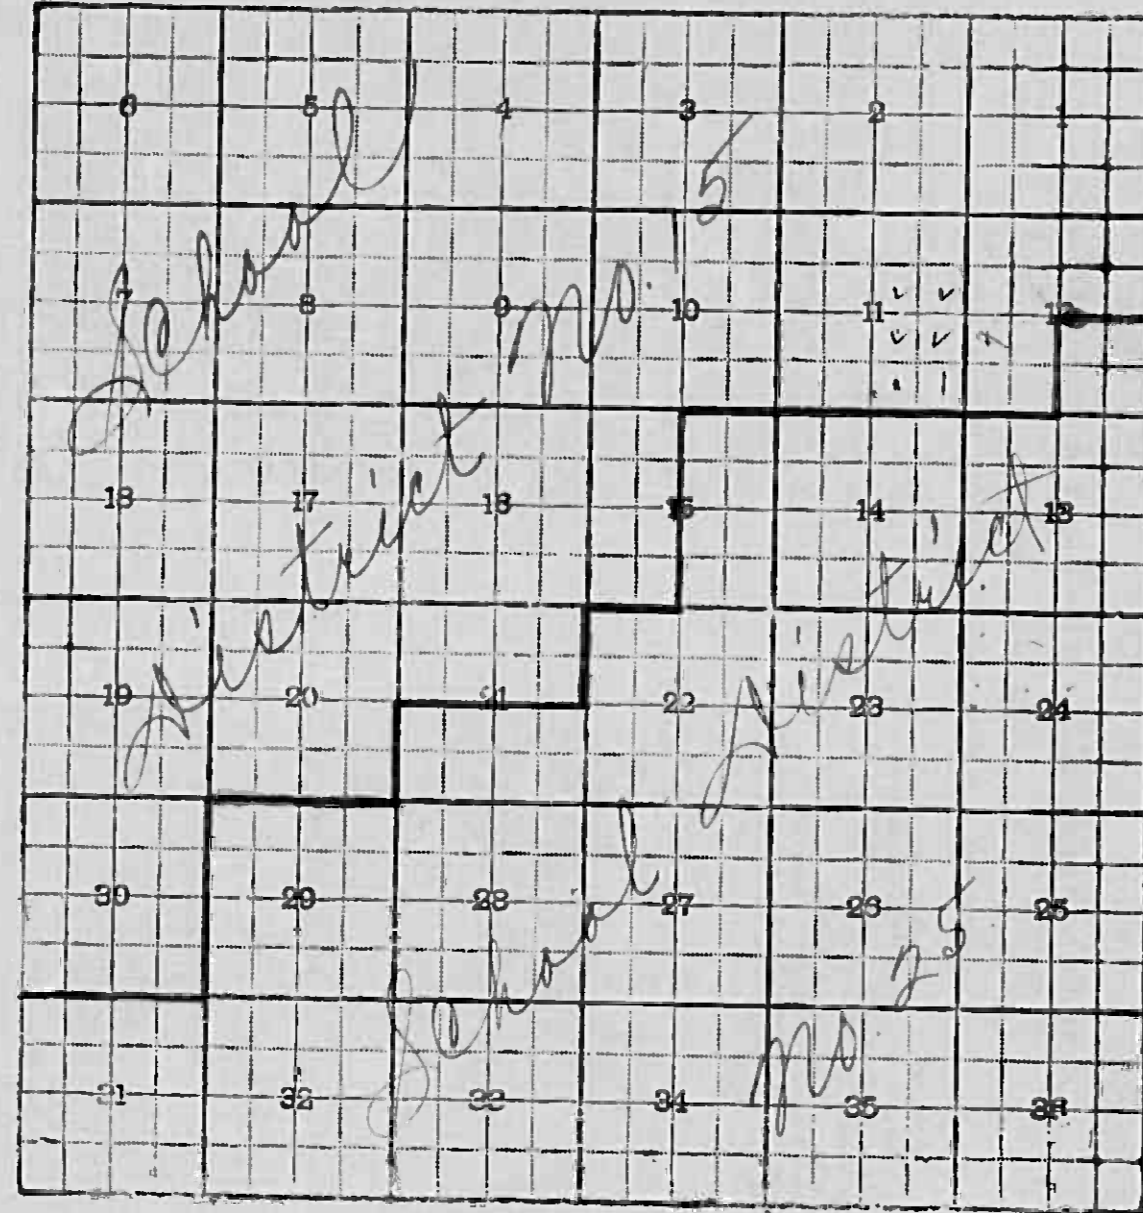 6 5 4 3 2 1
7 8 9 10 11 12
18 17 16 15 14 13
19 20 21 22 23 24
30 29 28 27 26 25
31 32 33 34 35 36
School
District No. 5
School District
No. 25